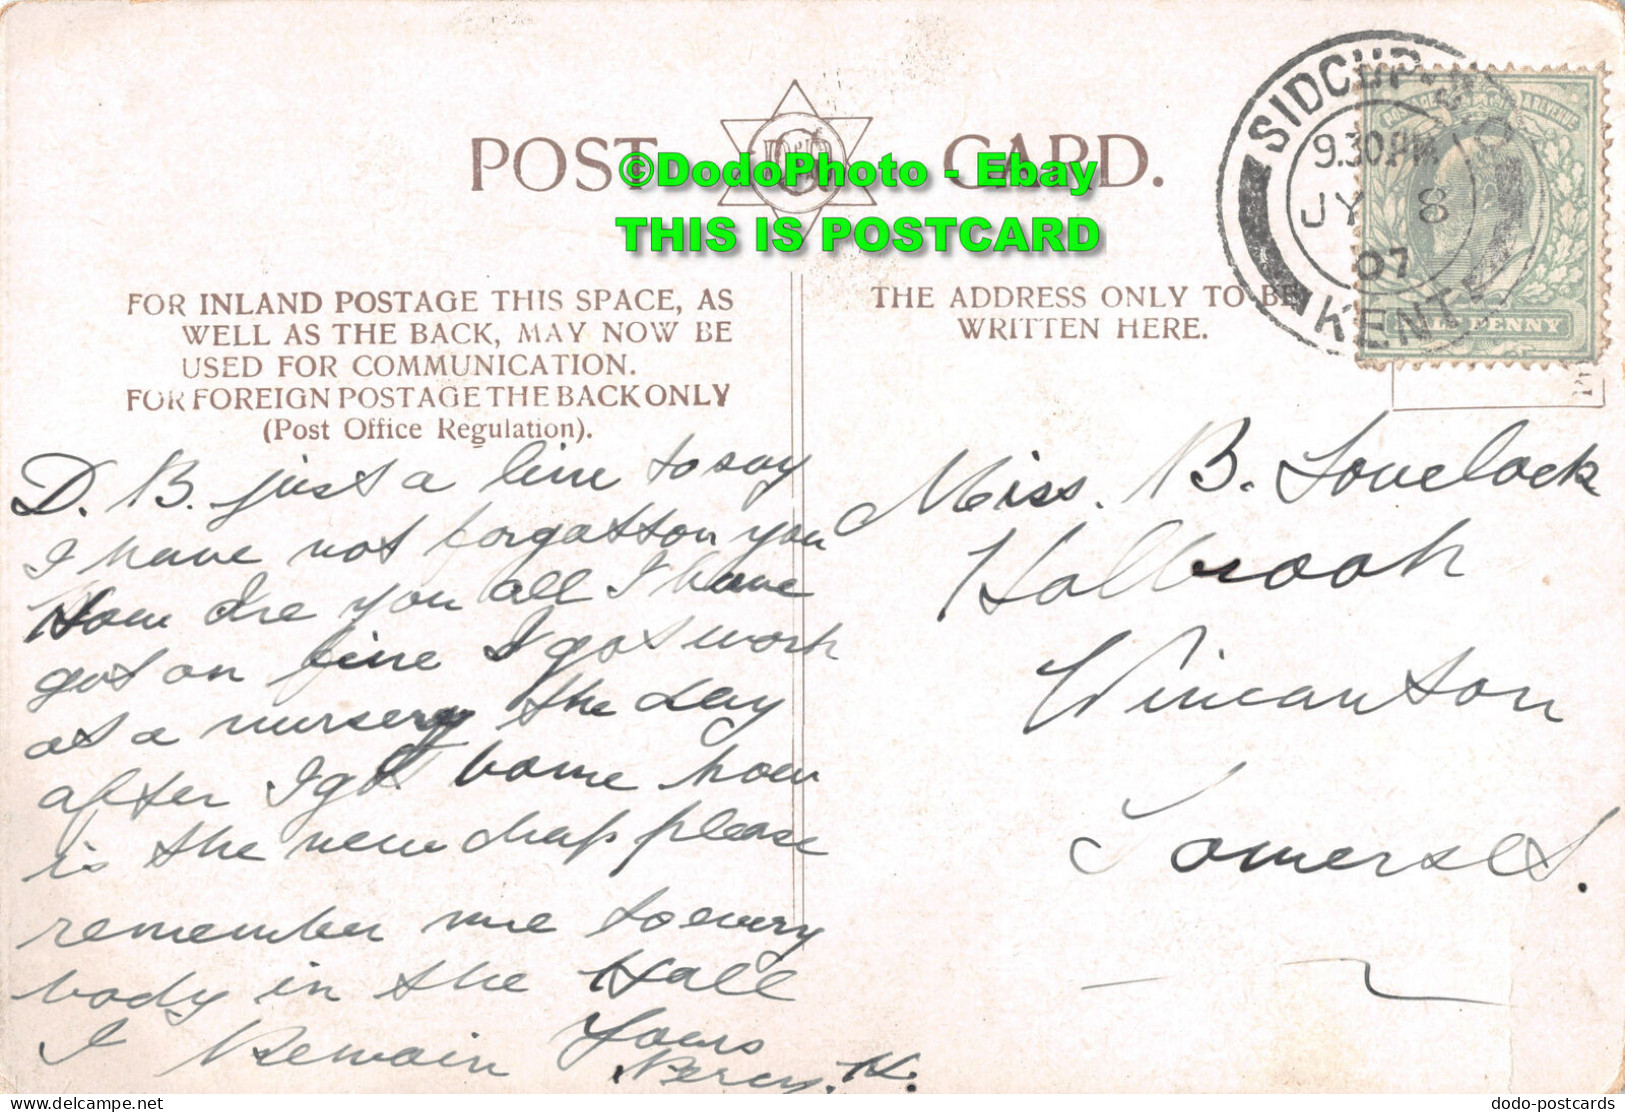 POST CARD.
©DodoPhoto - Ebay
THIS IS POSTCARD
SIDCUP
9.30PM
JY 8
07
KENT
HALFPENNY
FOR INLAND POSTAGE THIS SPACE, AS
WELL AS THE BACK, MAY NOW BE
USED FOR COMMUNICATION.
FOR FOREIGN POSTAGE THE BACK ONLY
(Post Office Regulation).
THE ADDRESS ONLY TO BE
WRITTEN HERE.
D. B. just a line to say
I have not forgatton you
How are you all I have
got on fine I got work
as a nursery the day
after I got home how
is the new chap please
remember me to every
body in the Hall
I Remain Yours
Percy. H.
Miss. B. Lovelock
Holbrook
Wincanton
Somerset.
dodo-postcards
www.delcampe.net